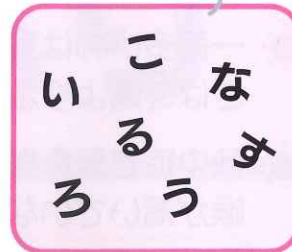 こ
い
な
る
す
ろ
う